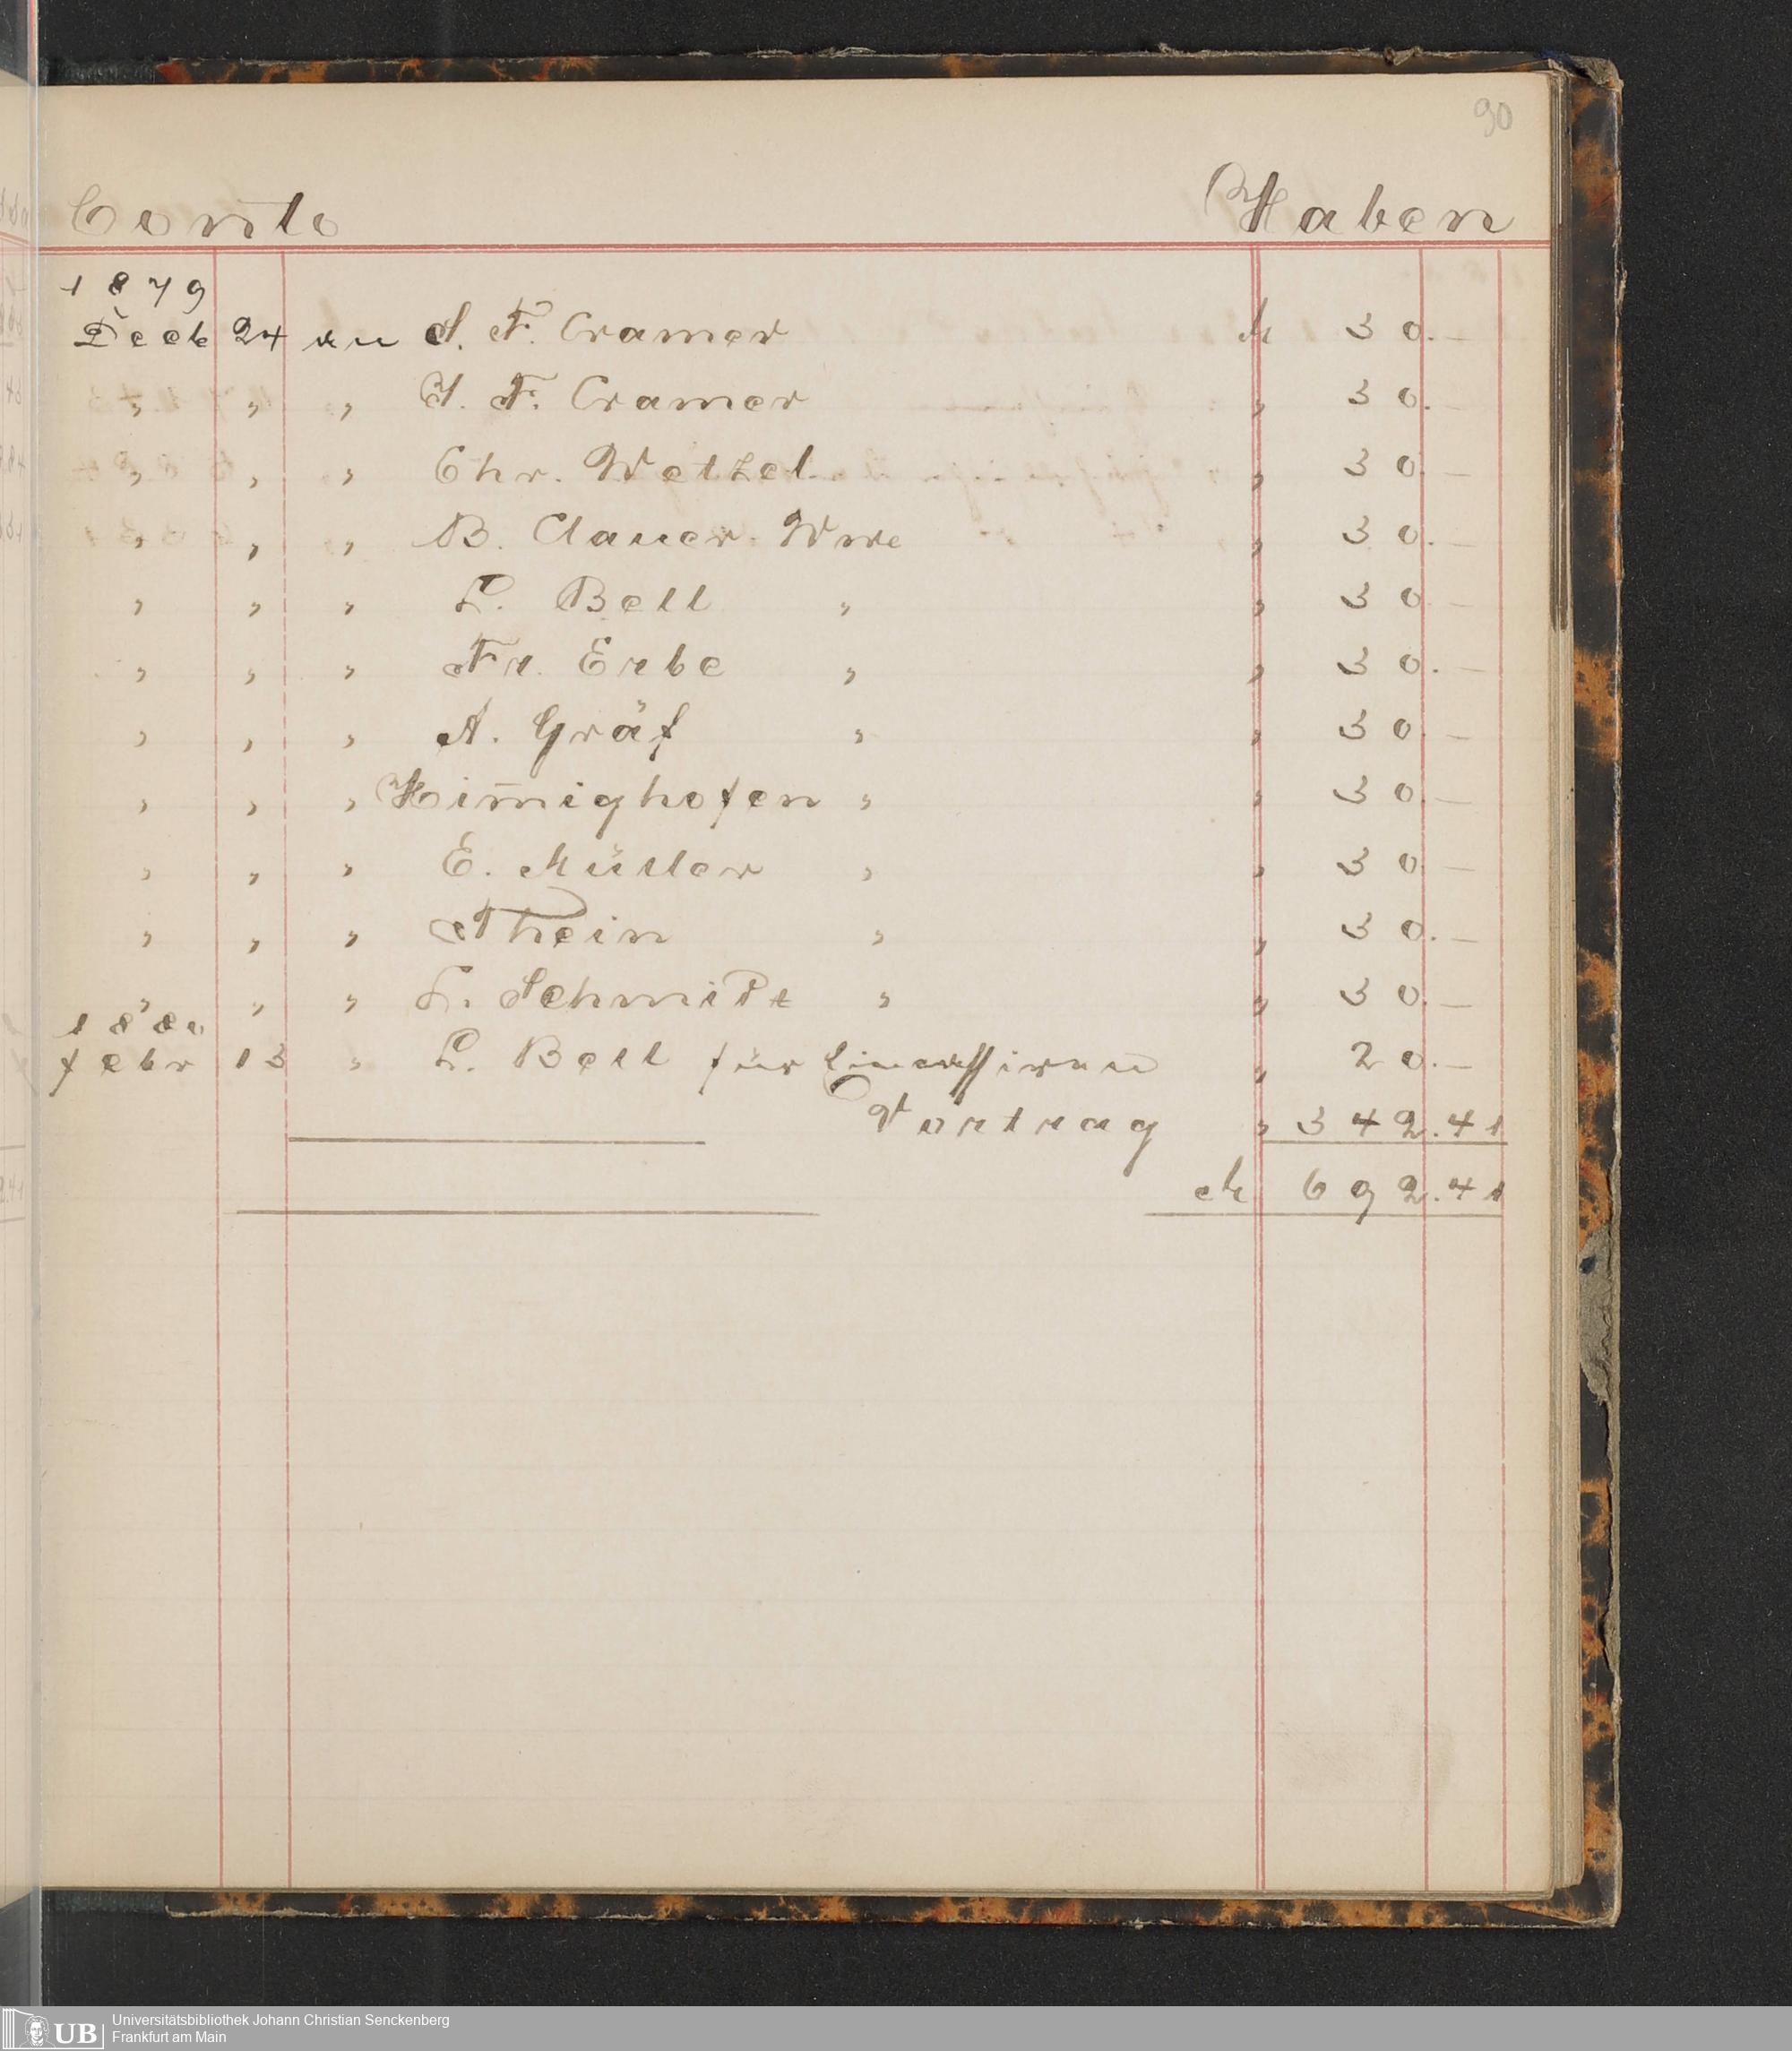 90
Conto Haben
1879
Decb 24 an J. F. Cramer M 30.—
" " " J. F. Cramer " 30.—
" " " Chr. Wetzel " 30.—
" " " B. Clauer Wwe " 30.—
" " " L. Bell " " 30.—
" " " Fr. Erbe " " 30.—
" " " A. Gräf " " 30.—
" " " Him̄ighofen " " 30.—
" " " E. Müller " " 30.—
" " " Thein " " 30.—
" " " L. Schmidt " " 30.—
1880
febr 13 " L. Bell für " 20.—
Vortrag " 342.41
M 692.41
UB Universitätsbibliothek Johann Christian Senckenberg
Frankfurt am Main